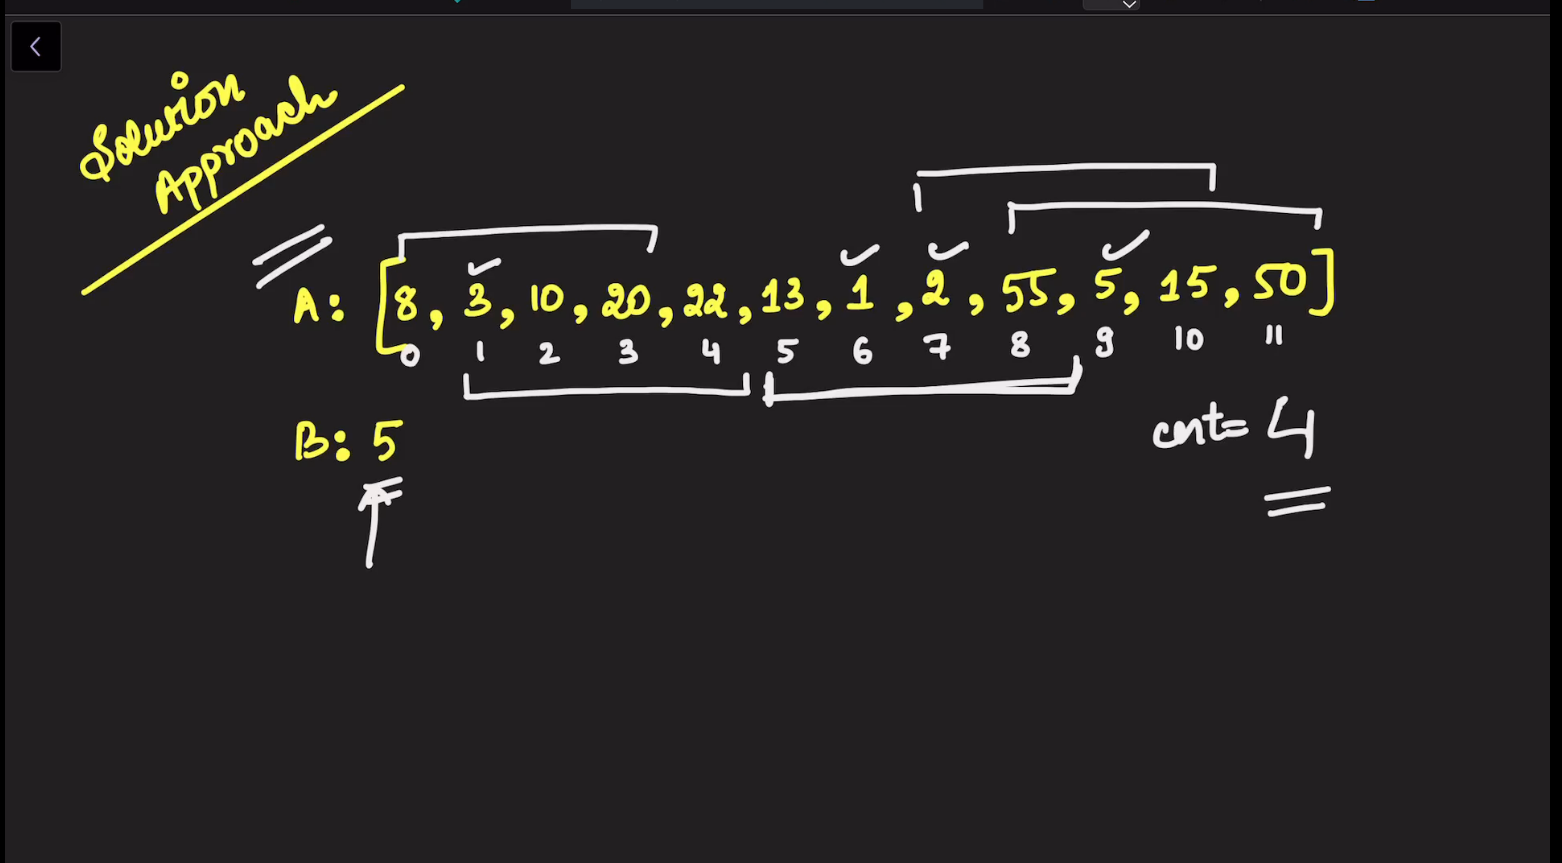 Solution
Approach
A: [8, 3, 10, 20, 22, 13, 1, 2, 55, 5, 15, 50]
0 1 2 3 4 5 6 7 8 9 10 11
B: 5
cnt= 4